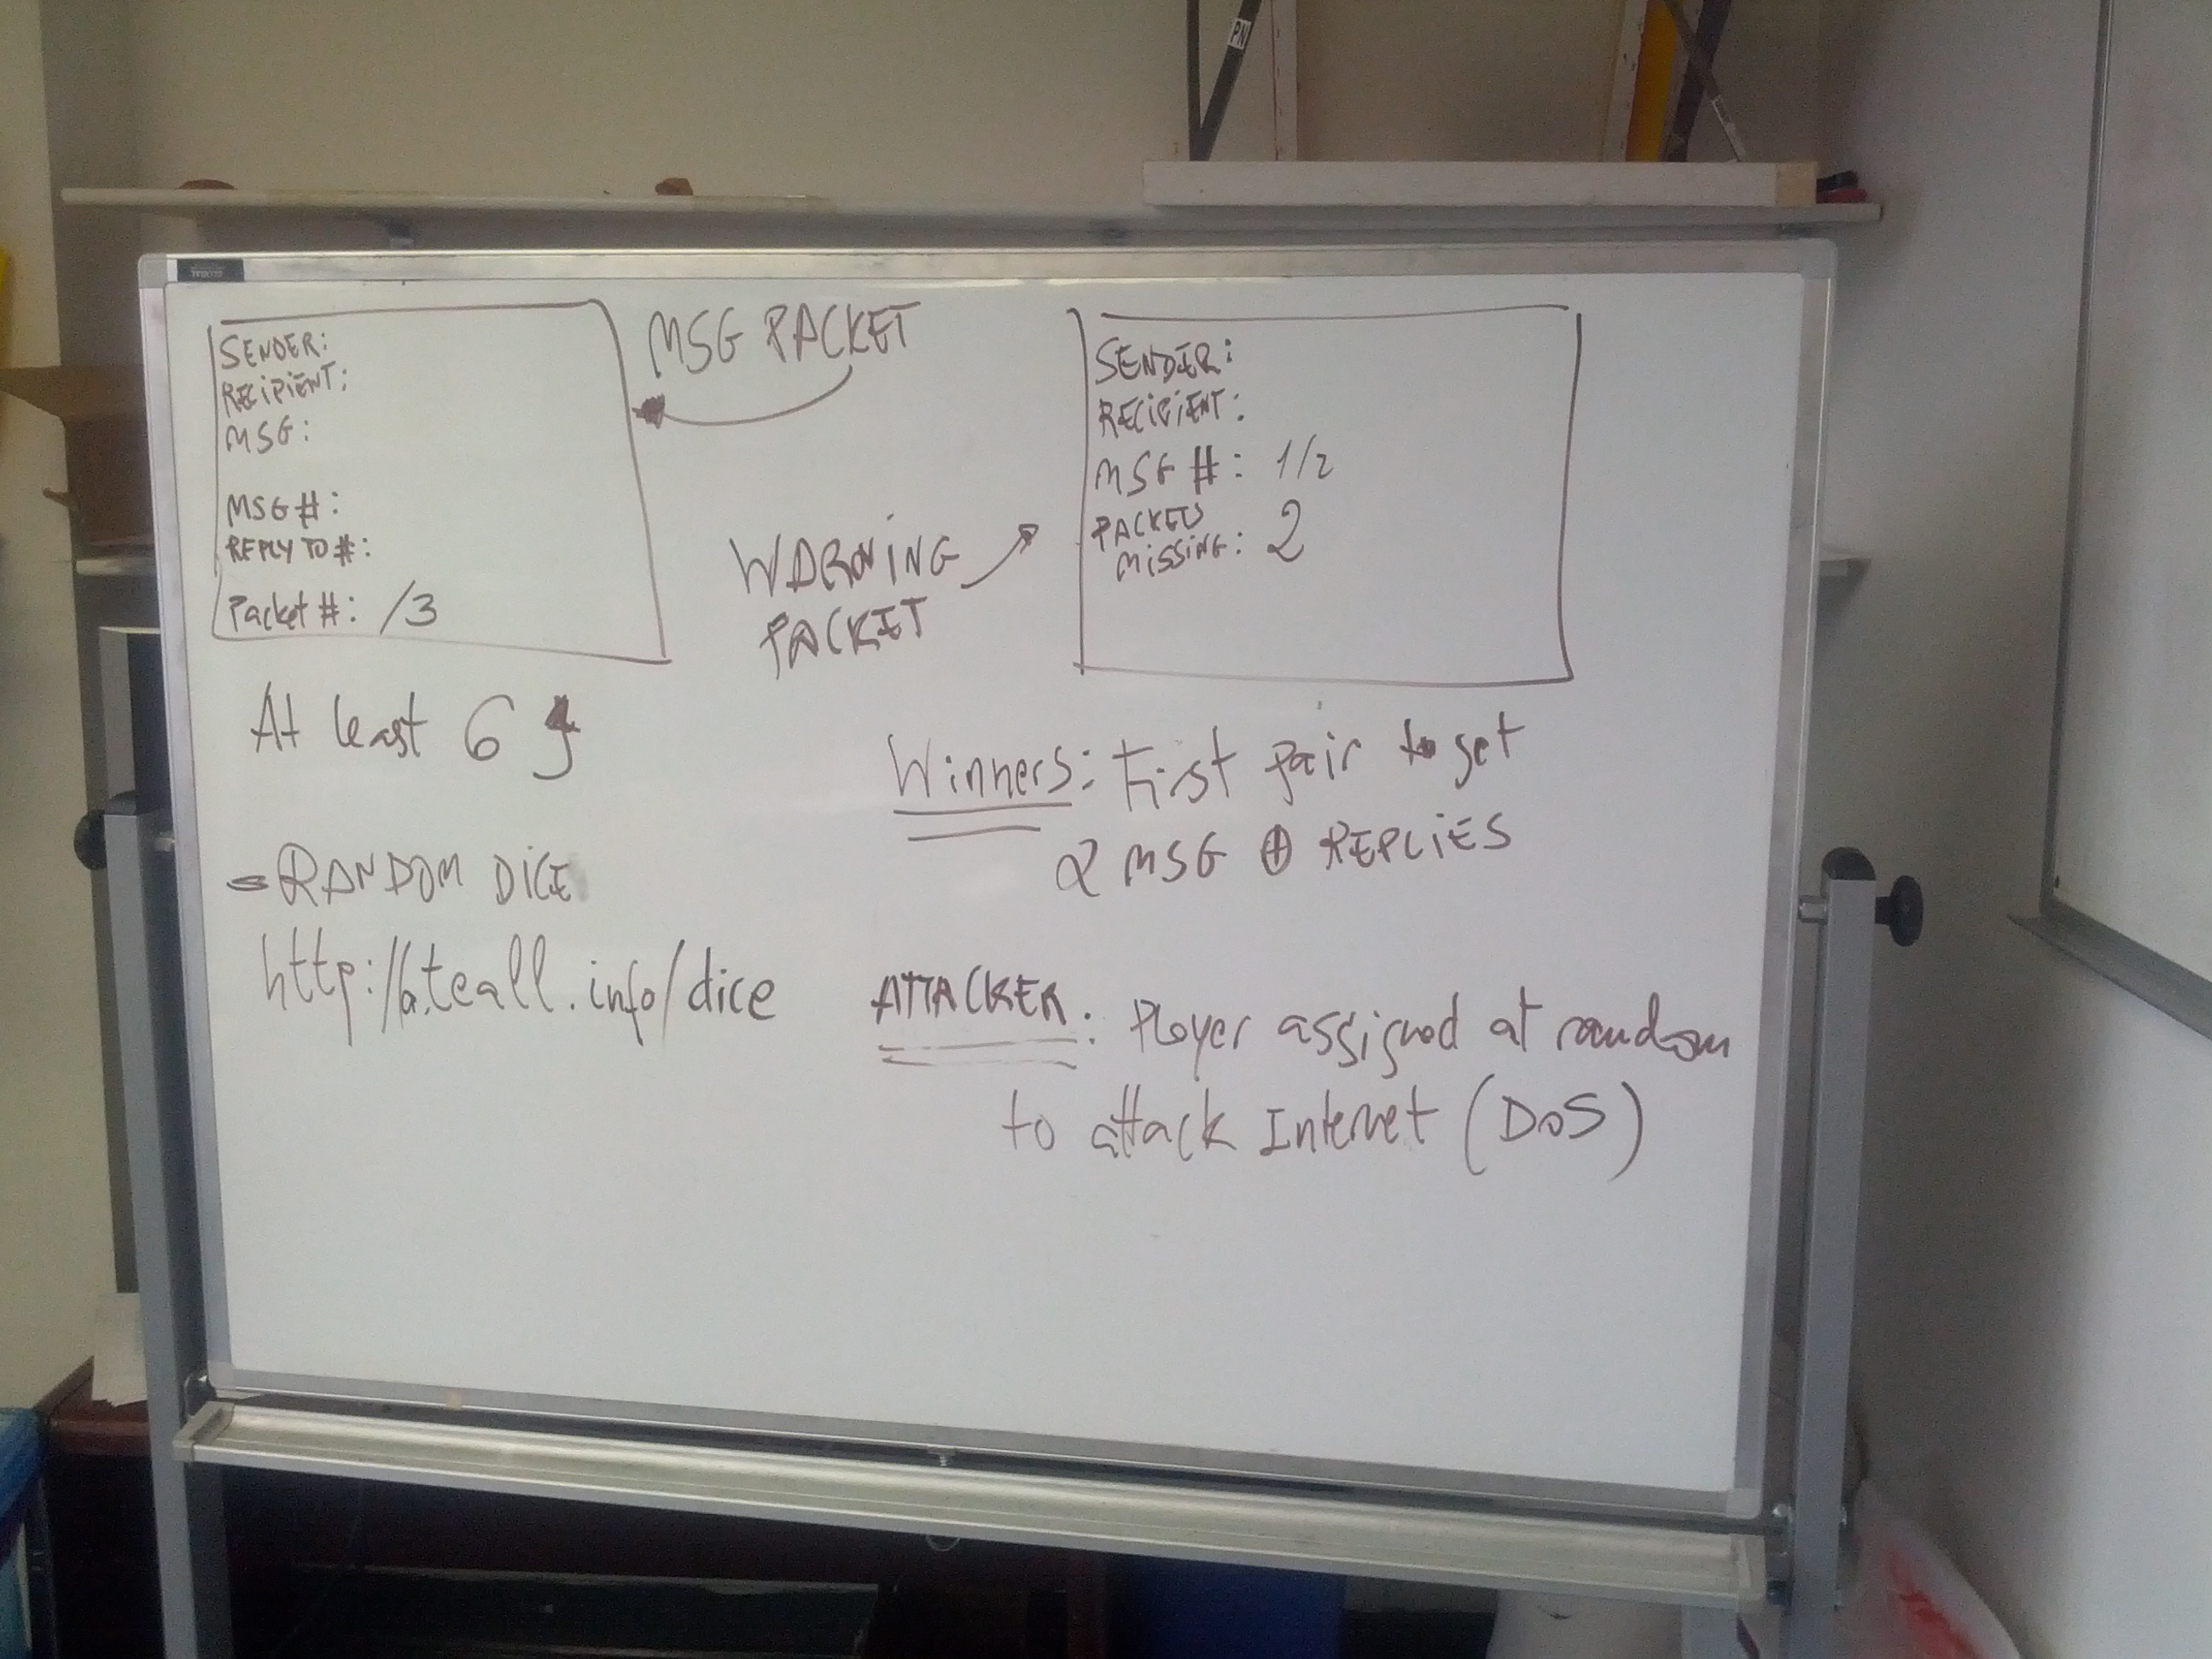 SENDER:
RECIPIENT:
MSG:
MSG #:
REPLY TO #:
Packet #: /3
MSG PACKET
WARNING
PACKET
SENDER:
RECIPIENT:
MSG #: 1/2
PACKETS
MISSING: 2
At least 6
Winners: First pair to get
2 MSG ⊕ REPLIES
=RANDOM DICE
http://a.teall.info/dice
ATTACKER: Player assigned at random
to attack Internet (DoS)
PN